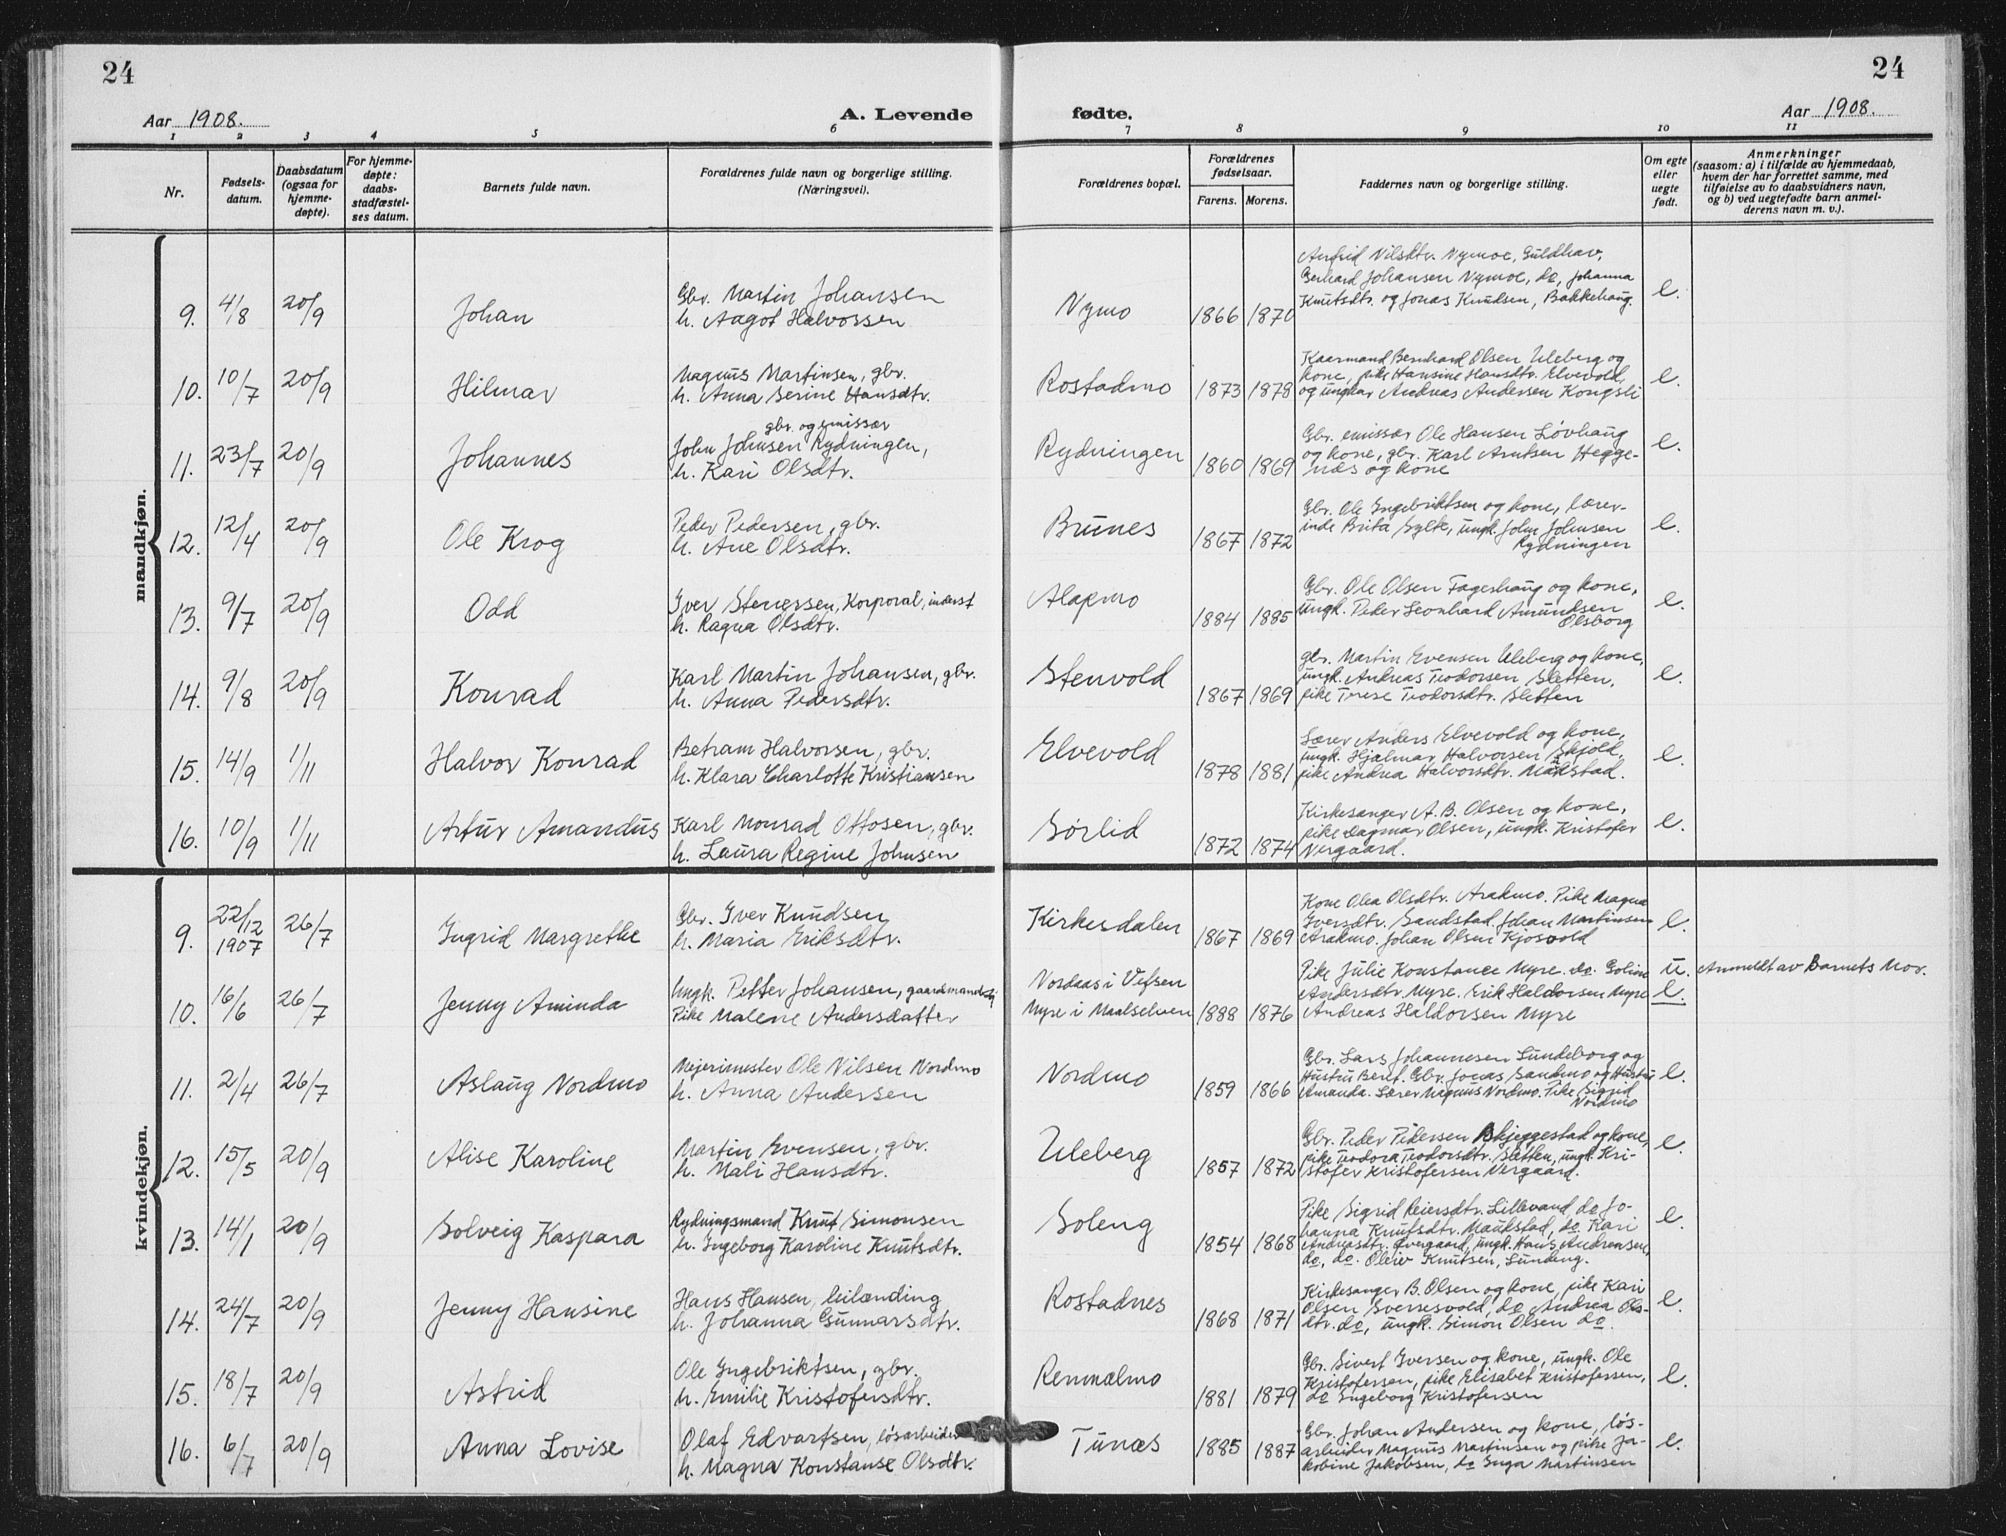 24
24
Aar 1908.
A. Levende
fødte.
Aar 1908.
1 2 3 4 5 6 7 8 9 10 11
Nr.
Fødsels-
datum.
Daabsdatum
(ogsaa for
hjemme-
døpte).
For hjemme-
døpte:
daabs-
stadfæstel-
ses datum.
Barnets fulde navn.
Forældrenes fulde navn og borgerlige stilling.
(Næringsvei).
Forældrenes bopæl.
Forældrenes
fødselsaar.
Farens. Morens.
Faddernes navn og borgerlige stilling.
Om egte
eller
uegte
født.
Anmerkninger
(saasom: a) i tilfælde av hjemmedaab,
hvem der har forrettet samme, med
tilføielse av to daabsvidners navn,
og b) ved uegtefødte barn anmel-
derens navn m. v.).
mandkjøn.
9. 4/8 20/9 Johan
Gbr. Martin Johansen
h. Aagot Halvorsen
Nymo 1866 1870
Anfrid Nilsdtr. Nymoe, Guldhav,
Gerhard Johansen Nymoe, do, Johanna
Knutsdtr. og Jonas Knudsen, Bakkehaug.
e.
10. 10/7 20/9 Hilmar
Magnus Martinsen, gbr.
h. Anna Serine Hansdtr.
Rostadmo 1873 1878
Kaarmand Bernhard Olsen Uleberg og
kone, pike Hansine Hansdtr. Elvevold,
og ungkar Andreas Andersen Kongsli
e.
11. 23/7 20/9 Johannes
gbr. og emissær
John Johnsen Rydningen,
h. Kari Olsdtr.
Rydningen 1860 1869
Gbr. emissær Ole Hansen Løvhaug
og kone, gbr. Karl Arntsen Hegge-
næs og kone
e.
12. 12/4 20/9 Ole Krog
Peder Pedersen, gbr.
h. Ane Olsdtr.
Brunes 1867 1872
Gbr. Ole Ingebriktsen og kone, lærer-
inde Brita Sylte, ungk. John Johnsen
Rydningen
e.
13. 9/7 20/9 Odd
Iver Stenersen, Korporal, inderst
h. Ragna Olsdtr.
Alapmo 1884 1885
Gbr. Ole Olsen Fagerhaug og kone,
ungk. Peder Leonhard Amundsen
Olsborg
e.
14. 9/8 20/9 Konrad
Karl Martin Johansen, gbr.
h. Anna Pedersdtr.
Stenvold 1867 1869
gbr. Martin Evensen Uleberg og kone,
ungk. Andreas Teodorsen Sletten,
pike Terese Teodorsdtr. Sletten
e.
15. 14/9 1/11 Halvor Konrad
Betram Halvorsen, gbr.
h. Klara Charlotte Kristiansen
Elvevold 1878 1881
Lærer Anders Elvevold og kone,
ungk. Hjalmar Halvorsen Skjold,
pike Andrea Halvorsdtr. Maukstad.
e.
16. 10/9 1/11 Artur Amandus
Karl Monrad Ottosen, gbr.
h. Laura Regine Johnsen
Sørlid 1872 1874
Kirkesanger A. B. Olsen og kone,
pike Dagmar Olsen, ungk. Kristofer
Vergaard.
e.
kvindekjøn.
9. 22/12 1907 26/7 Ingrid Margrethe
Gbr. Iver Knudsen
h. Maria Eriksdtr.
Kirkesdalen 1867 1869
Kone Olea Olsdtr. Arakmo. Pike Magna
Iversdtr. Sandstad. Johan Martinsen
Arakmo. Johan Olsen Kjosvold
e.
10. 16/6 26/7 Jenny Aminda
Ungk. Petter Johansen, gaardmandssøn
Pike Malene Andersdatter
Nordaas i Vefsen
Myre i Maalselven 1888 1876
Pike Julie Konstance Myre. do. Goline
Andersdtr. Myre. Erik Haldorsen Myre
Andreas Haldorsen Myre
u.
e.
Anmeldt av Barnets Mor.
11. 2/4 26/7 Aslaug Nordmo
Mejerimester Ole Nilsen Nordmo
h. Anna Andersen
Nordmo 1859 1866
Gbr. Lars Johannesen Lundeborg og
Hustru Beret. Gbr. Jonas Sandmo og Hustru
Amanda. Lærer Magnus Nordmo. Pike Sigrid
Nordmo
e.
12. 15/5 20/9 Alise Karoline
Martin Evensen, gbr.
h. Mali Hansdtr.
Uleberg 1857 1872
Gbr. Peder Pedersen Skjeggestad og kone,
pike Teodora Teodorsdtr. Sletten, ungk. Kri-
stofer Kristofersen Vergaard.
e.
13. 14/1 20/9 Solveig Kaspara
Rydningsmand Knut Simonsen
h. Ingeborg Karoline Knutsdtr.
Soleng 1854 1868
Pike Sigrid Reiersdtr. Lillevand, do Jo-
hanna Knutsdtr. Maukstad, do Kari
Andreasdtr. Øvergaard, ungk. Hans Andreasen,
do, do. Oleiv Knutsen, Lundeng.
e.
14. 24/7 20/9 Jenny Hansine
Hans Hansen, leilænding
h. Johanna Gunnarsdtr.
Rostadnes 1868 1871
Kirkesanger B. Olsen og kone, pike Kari
Olsen, Sverresvold, do Andrea Ols-
dtr. do, ungk. Simon Olsen do.
e.
15. 18/7 20/9 Astrid
Ole Ingebriktsen, gbr.
h. Emilie Kristofersdtr.
Remmelmo 1881 1879
Gbr. Sivert Iversen og kone, ungk. Ole
Kristofersen, pike Elisabet Kristofersen,
do Ingeborg Kristofersen
e.
16. 6/7 20/9 Anna Lovise
Olaf Edvartsen, løsarbeider
h. Magna Konstanse Olsdtr.
Tunæs 1885 1887
Gbr. Johan Andersen og kone, løs-
arbeider Magnus Martinsen og pike Ja-
kobine Jakobsen, do Inga Martinsen
e.